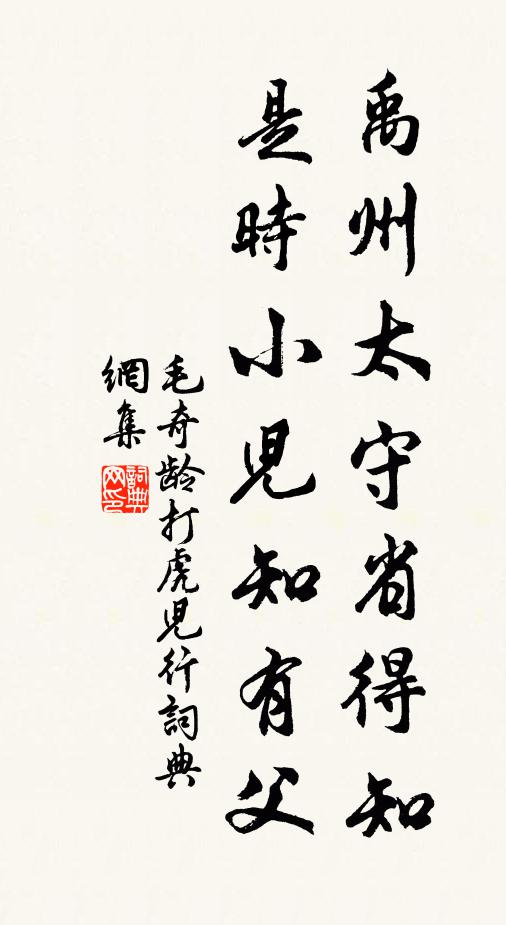 禹州太守省得知
是時小児知有父
毛奇龄打虎児行詞典
網集
詞典网印